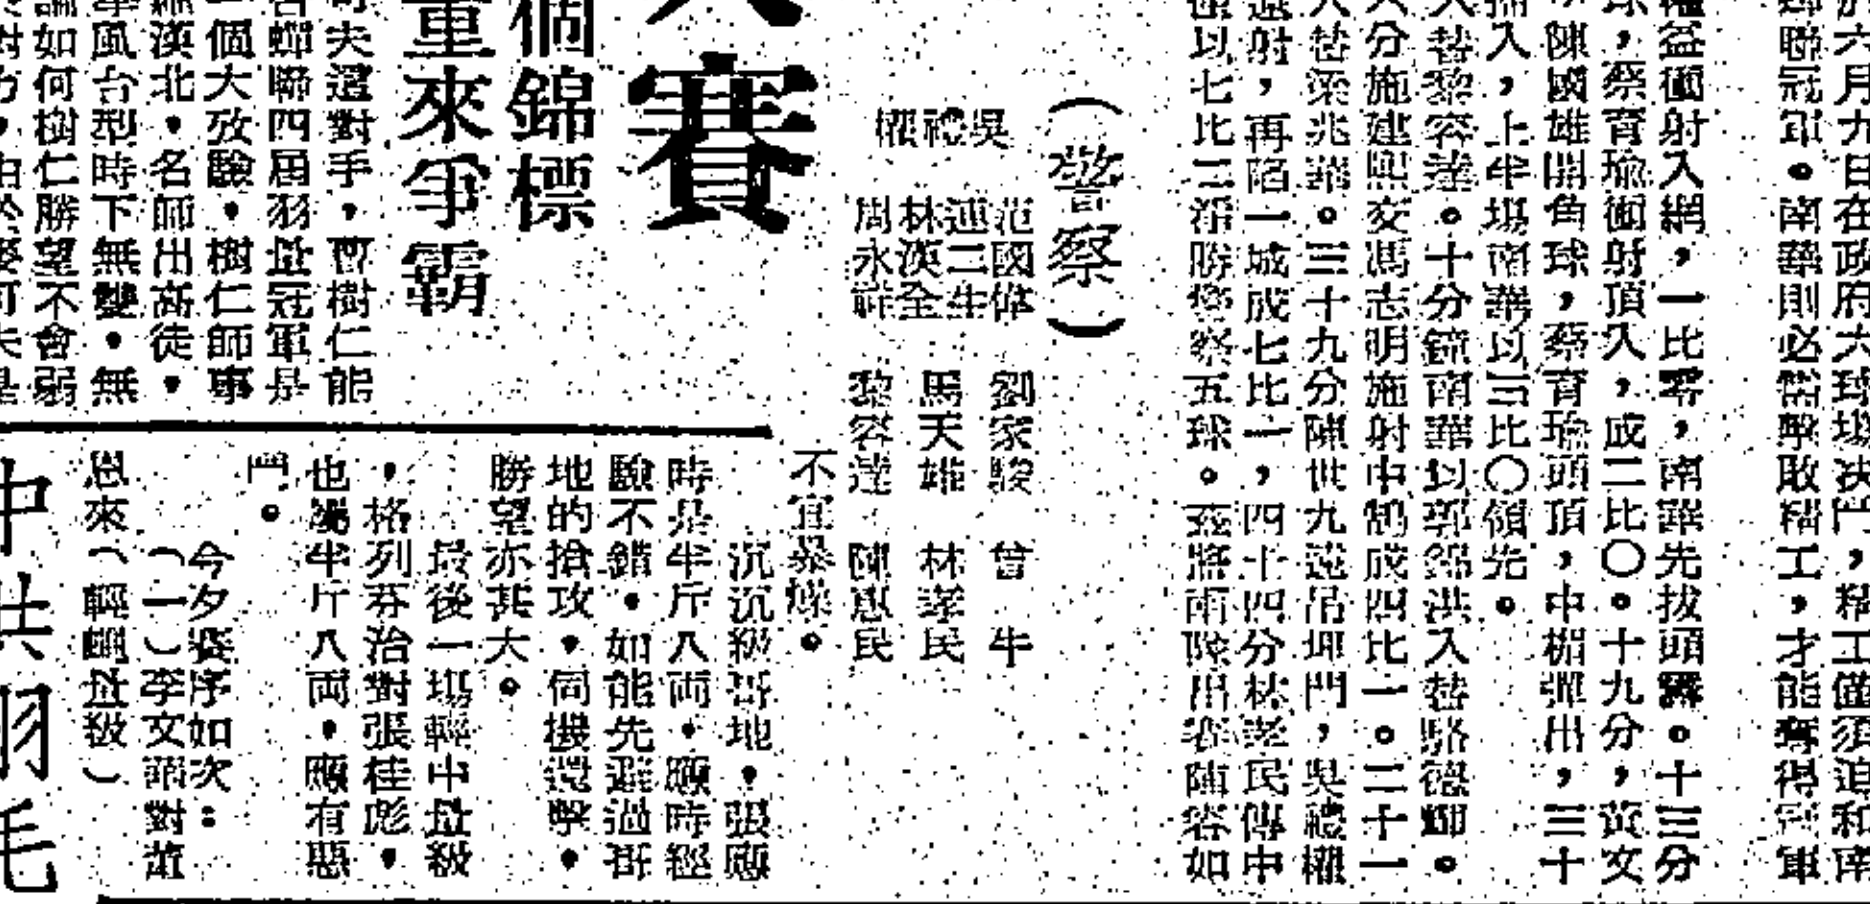 於六月九日在政府大球場决鬥，精工僅須追和南
蟬聯冠軍。南華則必需擊敗精工，才能奪得冠軍
權益衝射入網，一比零，南華先拔頭籌。十三分
球，蔡育瑜衝射頂入，成二比〇。十九分，黃文
，陳國雄開角球，蔡育瑜頭頂，中楣彈出，三十
入，上半場南華以三比〇領先。
入替黎容達。十分鐘南華以郭錦洪入替駱德輝。
八分施建熙交馮志明施射中鵠成四比一。二十一
入替梁兆華。三十九分陳世九遠吊埋門，吳禮權
遠射，再陷一城成七比一，四十四分林孝民傳中
以七比二淨勝警察五球。茲將兩隊出賽陣容如
（警察）
吳禮權
范國偉　劉家駿　曾　牛
連二生
林漢全　馬天雄　林孝民
周永祥　黎容達　陳惠民
賽
個錦標
重來爭霸
夫選對手，曹樹仁能
蟬聯四屆羽量冠軍是
一個大攷驗。樹仁師事
漢北，名師出高徒，
風台型時下無雙。無
論如何樹仁勝望不會弱
不宜暴燥。
沉沉級哥地，張應
時是半斤八両，應時經
驗不錯。如能先避過哥
地的搶攻，伺機還擊，
勝望亦甚大。
最後一場輕中量級
，格列芬治對張桂彪，
也屬半斤八両，應有惡
鬥。
今夕賽序如次：
（一）李文 對董
恩來（輕 量級）
中共羽毛